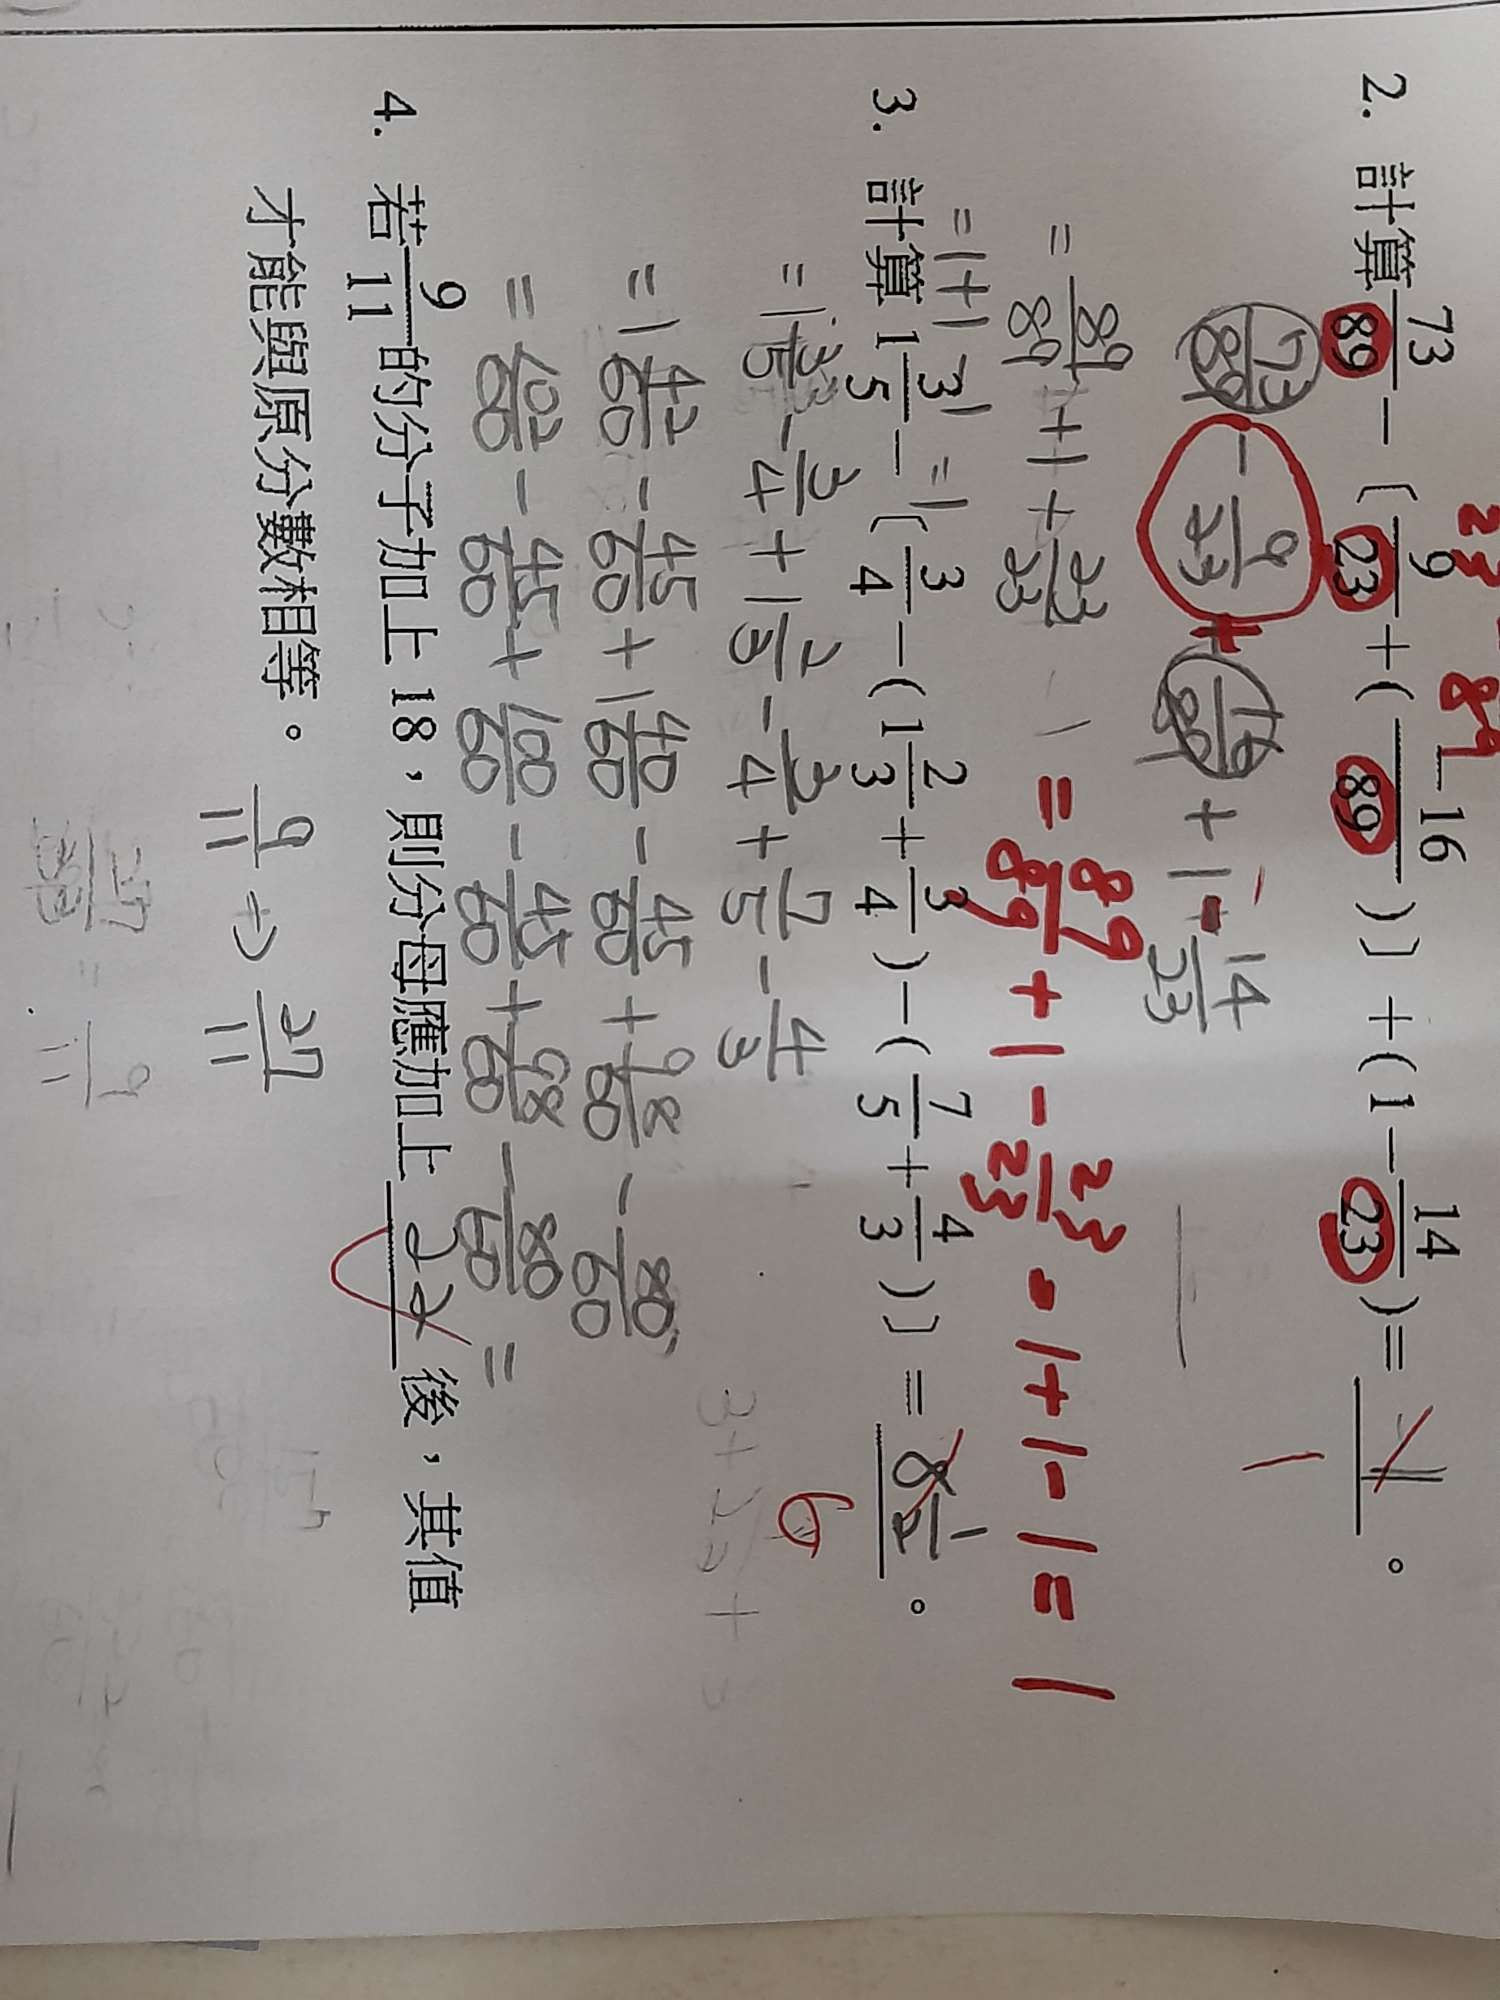 23 - 89
2. 計算 73/89 - 〔9/23 + (-16/89)〕 + (1 - 14/23) = 1 。
1
73/89 - 9/23 + 16/89 + 1 - 14/23
= 89/89 + 1 + 23/23 = 89/89 + 1 - 23/23 = 1 + 1 - 1 = 1
= 1 + 1 = 1
3. 計算 1 3/5 - 〔3/4 - (1 2/3 + 3/4) - (7/5 + 4/3)〕 = 8 1/2 。
6
= 1 3/5 - 3/4 + 1 2/3 - 3/4 + 7/5 - 4/3
= 1 42/60 - 45/60 + 1 40/60 - 45/60 + 98/60 - 80/60
= 102/60 - 45/60 + 100/60 - 45/60 + 98/60 - 80/60 =
4. 若 9/11 的分子加上 18,則分母應加上 22 後,其值
才能與原分數相等。 9/11 → 27/11
27/33 = 9/11